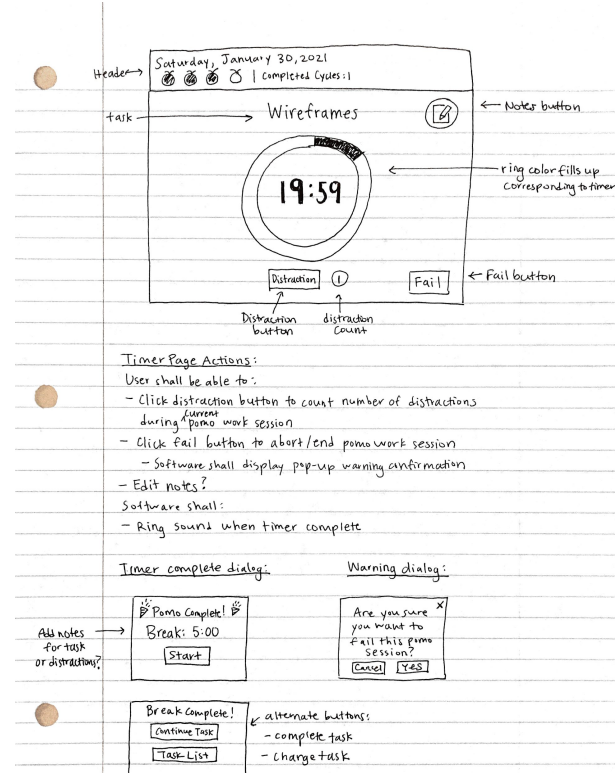 Saturday, January 30, 2021
Header
| Completed Cycles: 1
task
Wireframes
Notes button
ring color fills up
corresponding to timer
19:59
Distraction
1
Fail
Fail button
Distraction
button
distraction
count
Timer Page Actions:
User shall be able to:
- Click distraction button to count number of distractions
during current pomo work session
- Click fail button to abort/end pomo work session
- Software shall display pop-up warning confirmation
- Edit notes?
Software shall:
- Ring sound when timer complete
Timer complete dialog:
Warning dialog:
Pomo Complete!
Break: 5:00
Start
Add notes
for task
or distractions?
X
Are you sure
you want to
fail this pomo
session?
Cancel
Yes
Break Complete!
Continue Task
Task List
alternate buttons:
- complete task
- change task